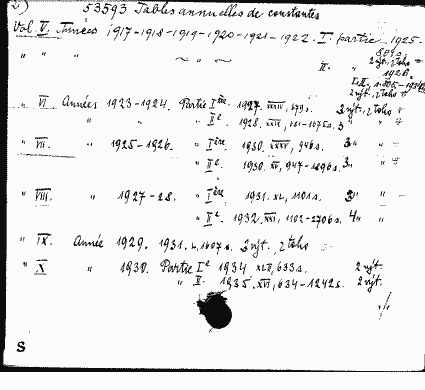 2) 53593 Tables annuelles de constantes
Vol. V. Années 1917-1918-1919-1920-1921-1922. I. partie 1925.
805 s.
" " " ~ " ~ II. " 2 výt. 2 toho
1926.
I.-II. s.
2 výt. 2 toho
" VI Années 1923-1924. Partie I ère 1927. XXXIV, 679 s. 2 výt. 2 toho
" " " " II e. 1928. s. 3 " "
" VII. " 1925-1926. " I ère. 1930. XXXV, 946 s. 3 " "
" II e. 1930. XV, 947-1896 s. 3 " "
" VIII. " 1927-28. " I ère 1931. XL, 1101 s. 3 " "
" II e. 1932. XVI, 1102-2706 s. 4 " "
" IX. Année 1929. 1931. L, 1607 s. 2 výt., 2 toho
" X " 1930. Partie I e 1934. XLII, 633 s. 2 výt.
" II. 1935. XVI, 634-1242 s. 2 výt.
S